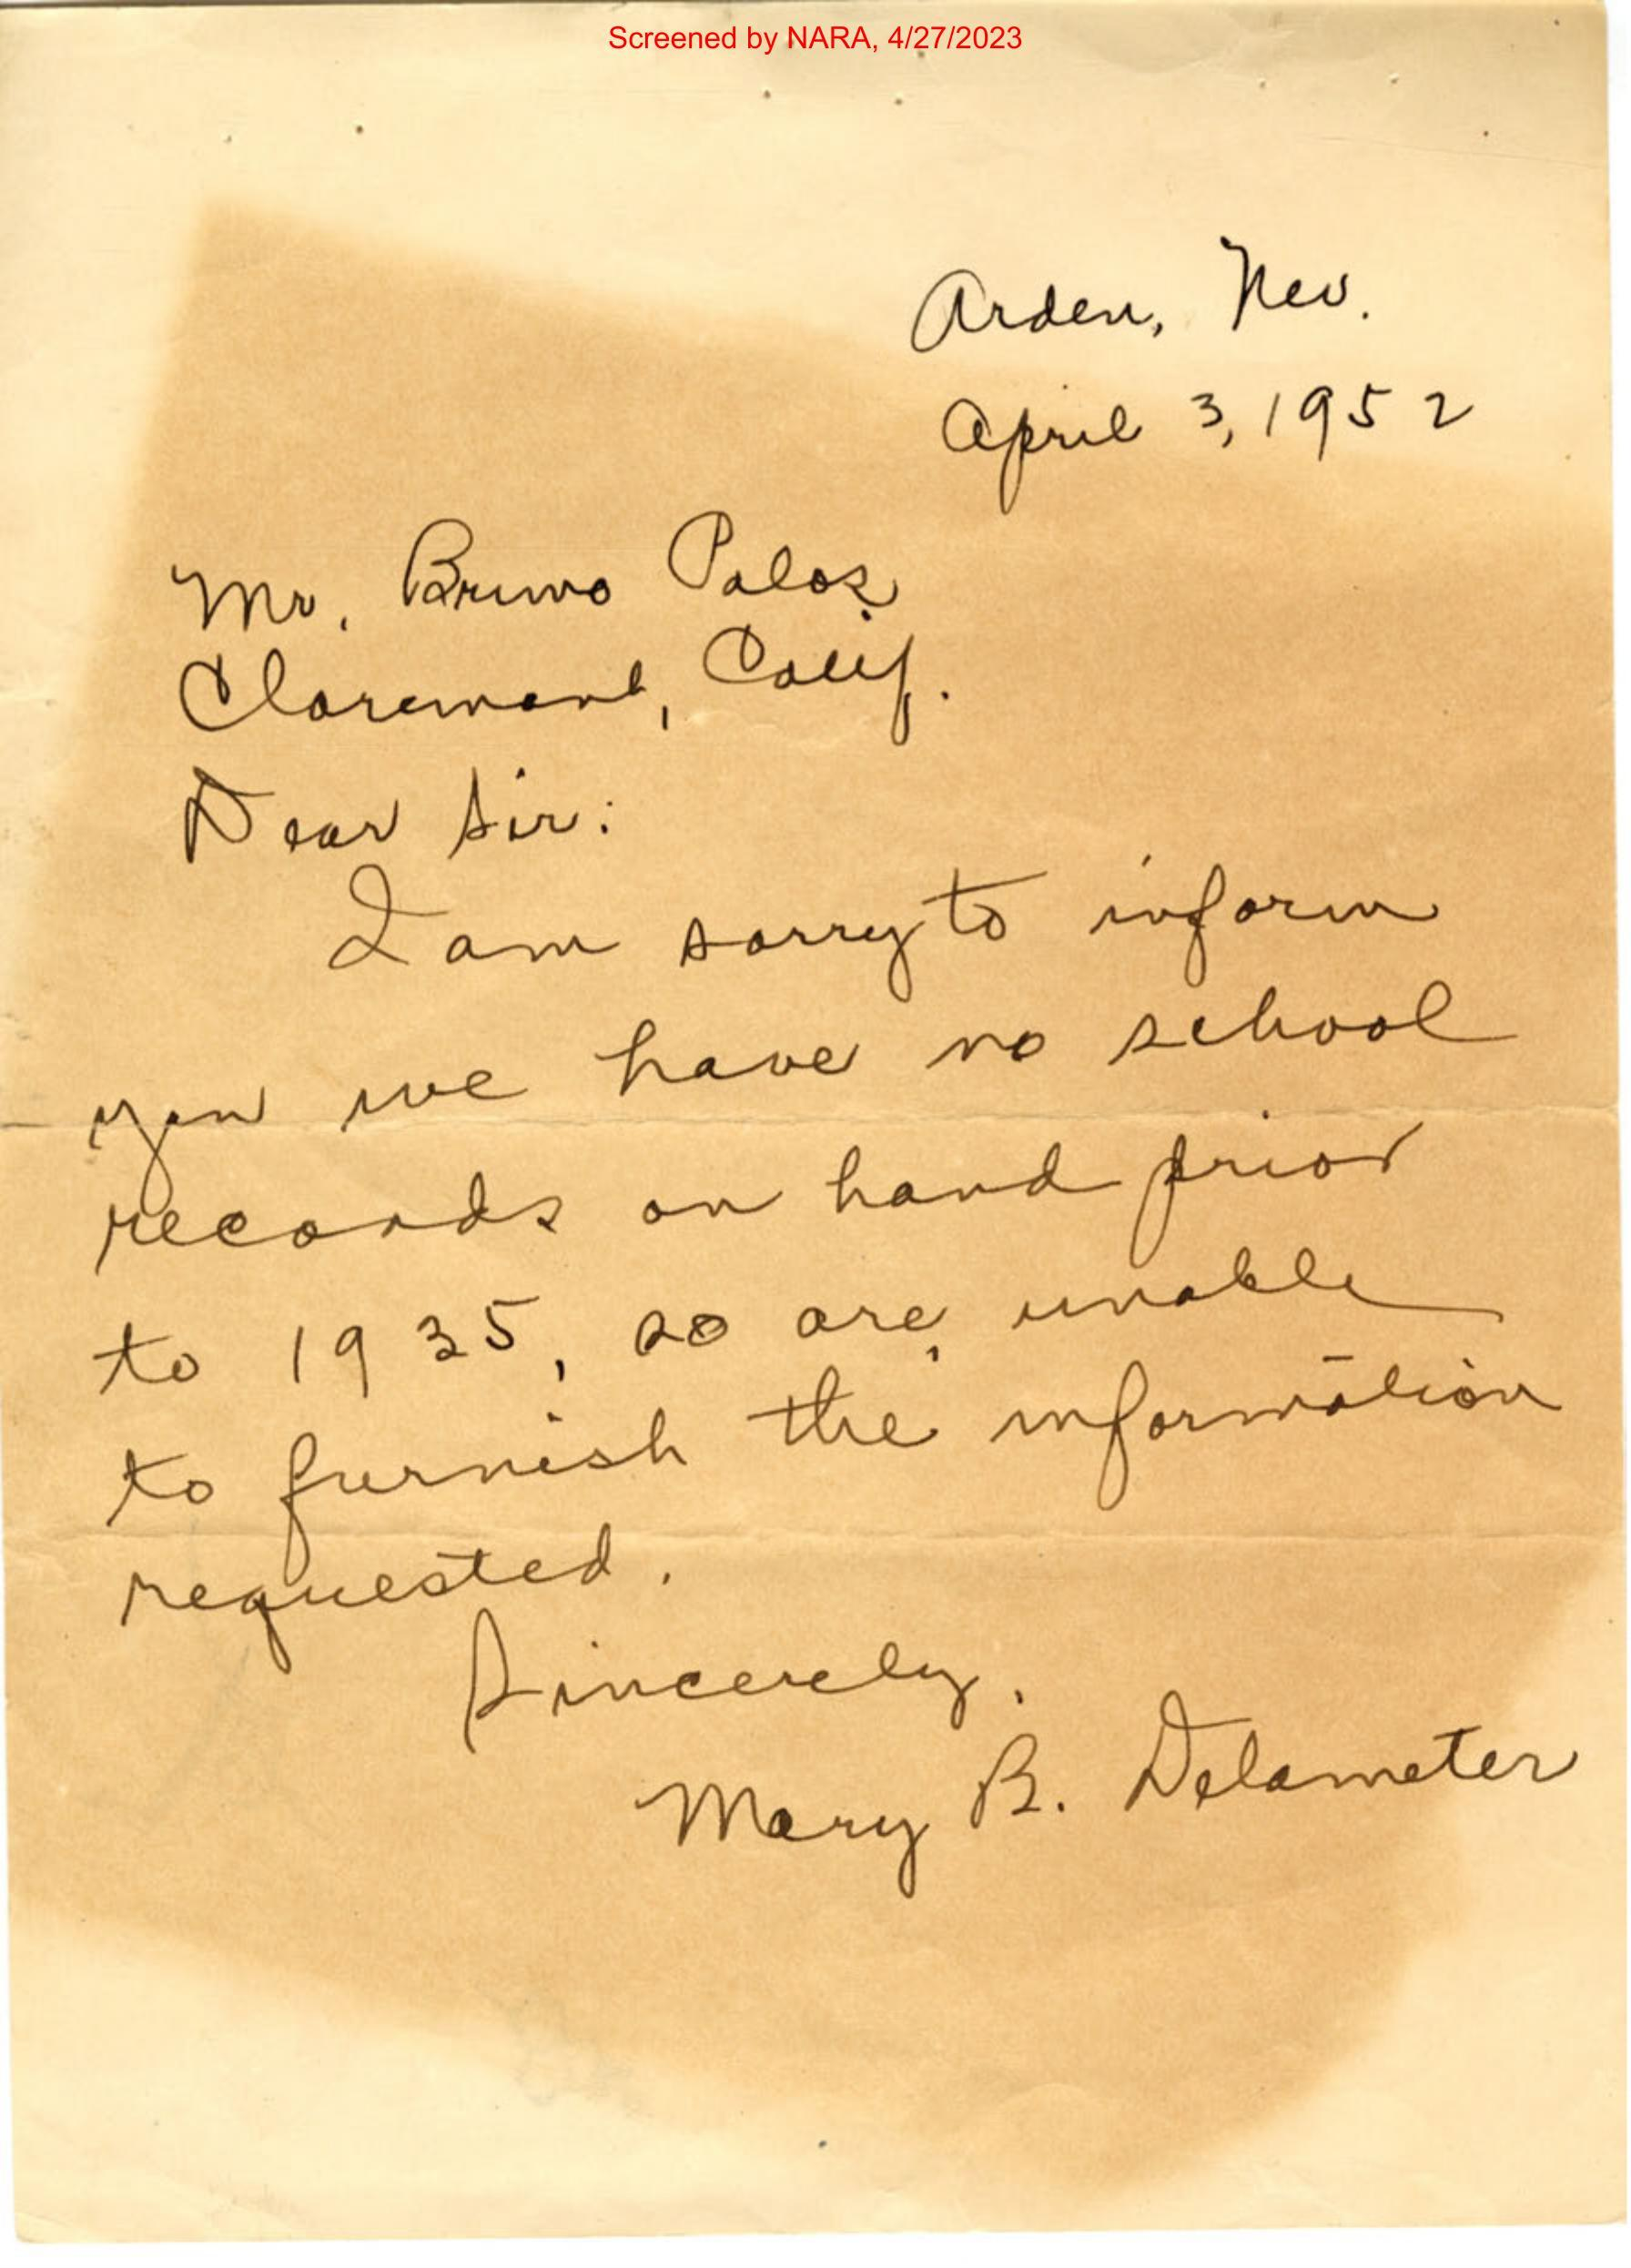 Screened by NARA, 4/27/2023
Arden, Nev.
April 3, 1952
Mr. Bruno Palos
Claremont, Calif.
Dear Sir:
I am sorry to inform
you we have no school
records on hand prior
to 1935, so are unable
to furnish the information
requested.
Sincerely,
Mary B. Delameter